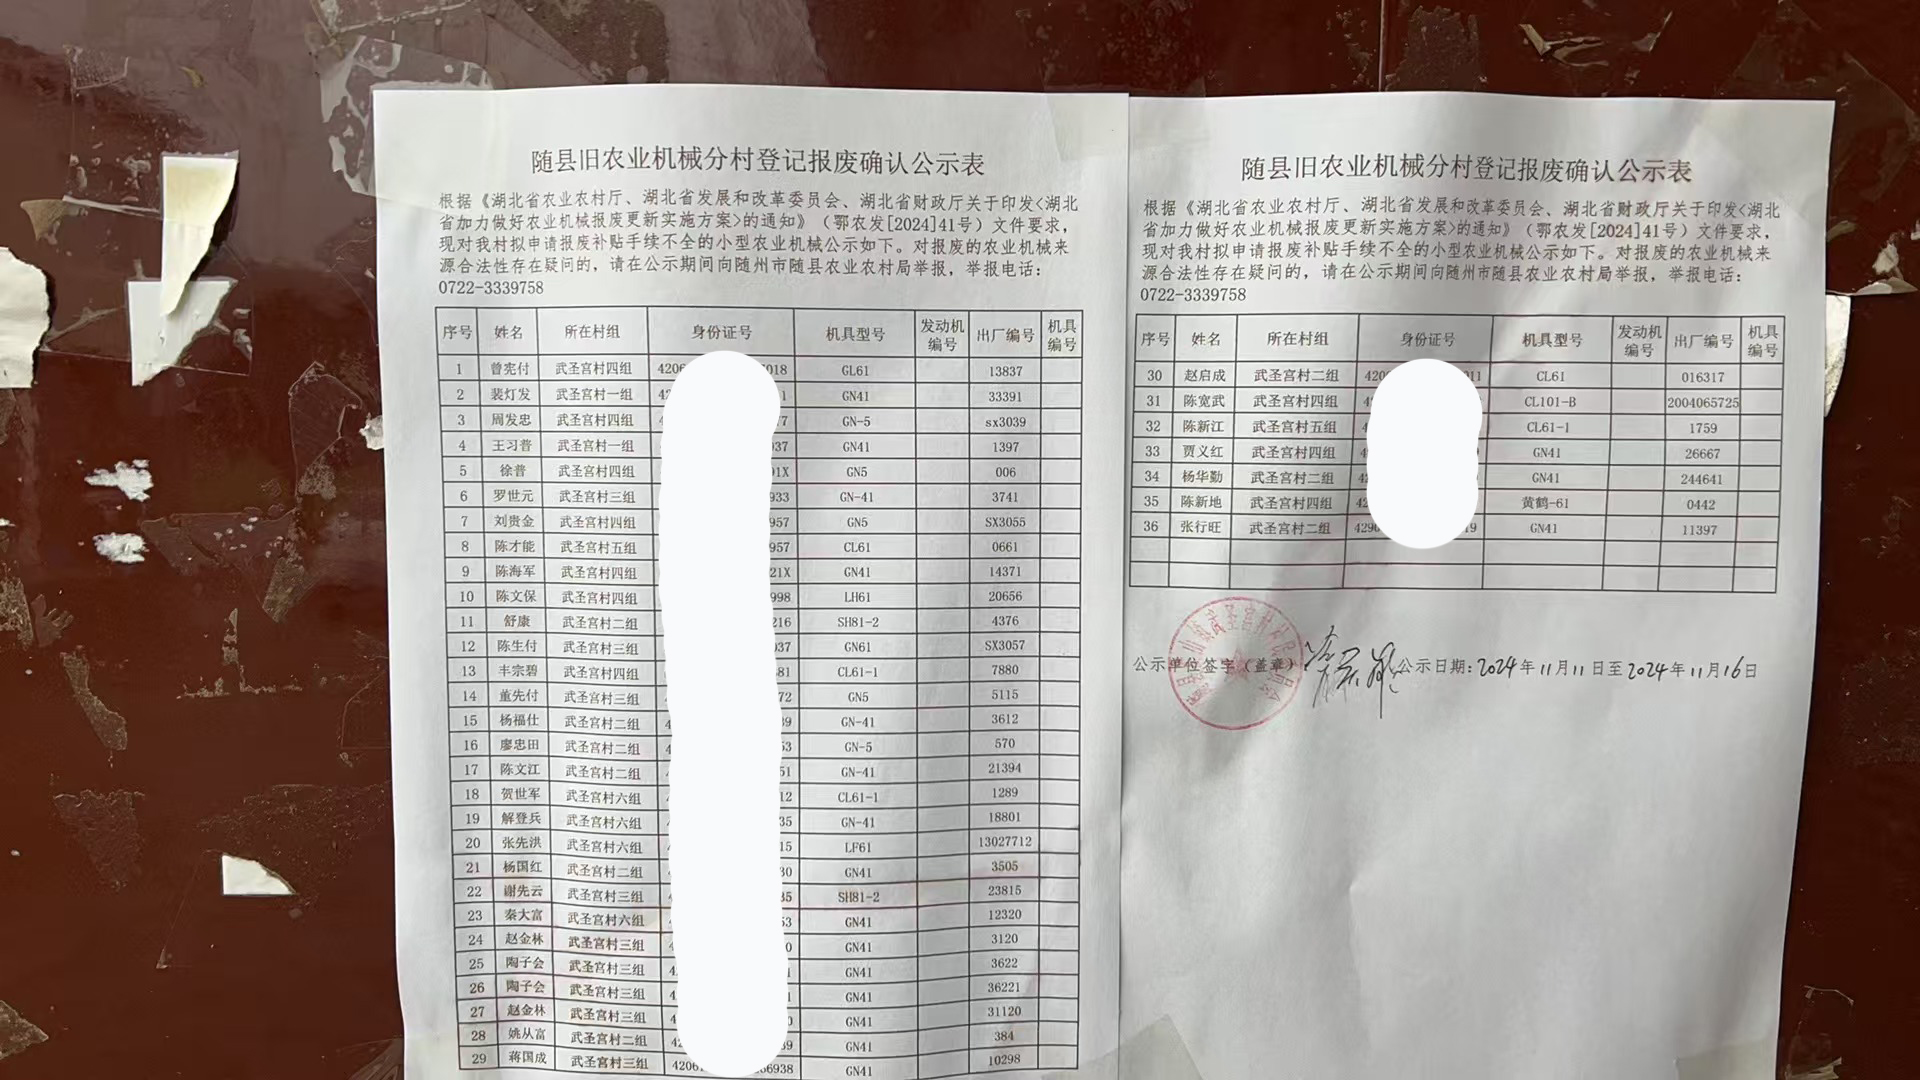 随县旧农业机械分村登记报废确认公示表
根据《湖北省农业农村厅、湖北省发展和改革委员会、湖北省财政厅关于印发<湖北
省加力做好农业机械报废更新实施方案>的通知》（鄂农发[2024]41号）文件要求，
现对我村拟申请报废补贴手续不全的小型农业机械公示如下。对报废的农业机械来
源合法性存在疑问的，请在公示期间向随州市随县农业农村局举报，举报电话：
0722-3339758
序号 姓名 所在村组 身份证号 机具型号 发动机编号 出厂编号 机具编号
1 曾宪付 武圣宫村四组 GL61 13837
2 裴灯发 武圣宫村一组 GN41 33391
3 周发忠 武圣宫村四组 GN-5 sx3039
4 王习普 武圣宫村一组 GN41 1397
5 徐普 武圣宫村四组 GN5 006
6 罗世元 武圣宫村三组 GN-41 3741
7 刘贵金 武圣宫村四组 GN5 SX3055
8 陈才能 武圣宫村五组 CL61 0661
9 陈海军 武圣宫村四组 GN41 14371
10 陈文保 武圣宫村四组 LH61 20656
11 舒康 武圣宫村二组 SH81-2 4376
12 陈生付 武圣宫村三组 GN61 SX3057
13 丰宗碧 武圣宫村四组 CL61-1 7880
14 董先付 武圣宫村三组 GN5 5115
15 杨福仕 武圣宫村二组 GN-41 3612
16 廖忠田 武圣宫村二组 GN-5 570
17 陈文江 武圣宫村二组 GN-41 21394
18 贺世军 武圣宫村六组 CL61-1 1289
19 解登兵 武圣宫村六组 GN-41 18801
20 张先洪 武圣宫村六组 LF61 13027712
21 杨国红 武圣宫村二组 GN41 3505
22 谢先云 武圣宫村三组 SH81-2 23815
23 秦大富 武圣宫村六组 GN41 12320
24 赵金林 武圣宫村三组 GN41 3120
25 陶子会 武圣宫村三组 GN41 3622
26 陶子会 武圣宫村三组 GN41 36221
27 赵金林 武圣宫村三组 GN41 31120
28 姚从富 武圣宫村二组 GN41 384
29 蒋国成 武圣宫村三组 GN41 10298
随县旧农业机械分村登记报废确认公示表
根据《湖北省农业农村厅、湖北省发展和改革委员会、湖北省财政厅关于印发<湖北
省加力做好农业机械报废更新实施方案>的通知》（鄂农发[2024]41号）文件要求，
现对我村拟申请报废补贴手续不全的小型农业机械公示如下。对报废的农业机械来
源合法性存在疑问的，请在公示期间向随州市随县农业农村局举报，举报电话：
0722-3339758
序号 姓名 所在村组 身份证号 机具型号 发动机编号 出厂编号 机具编号
30 赵启成 武圣宫村二组 CL61 016317
31 陈宽武 武圣宫村四组 CL101-B 2004065725
32 陈新江 武圣宫村五组 CL61-1 1759
33 贾义红 武圣宫村四组 GN41 26667
34 杨华勤 武圣宫村二组 GN41 244641
35 陈新地 武圣宫村四组 黄鹤-61 0442
36 张行旺 武圣宫村二组 GN41 11397
公示单位签字（盖章） 公示日期：2024年11月11日至2024年11月16日